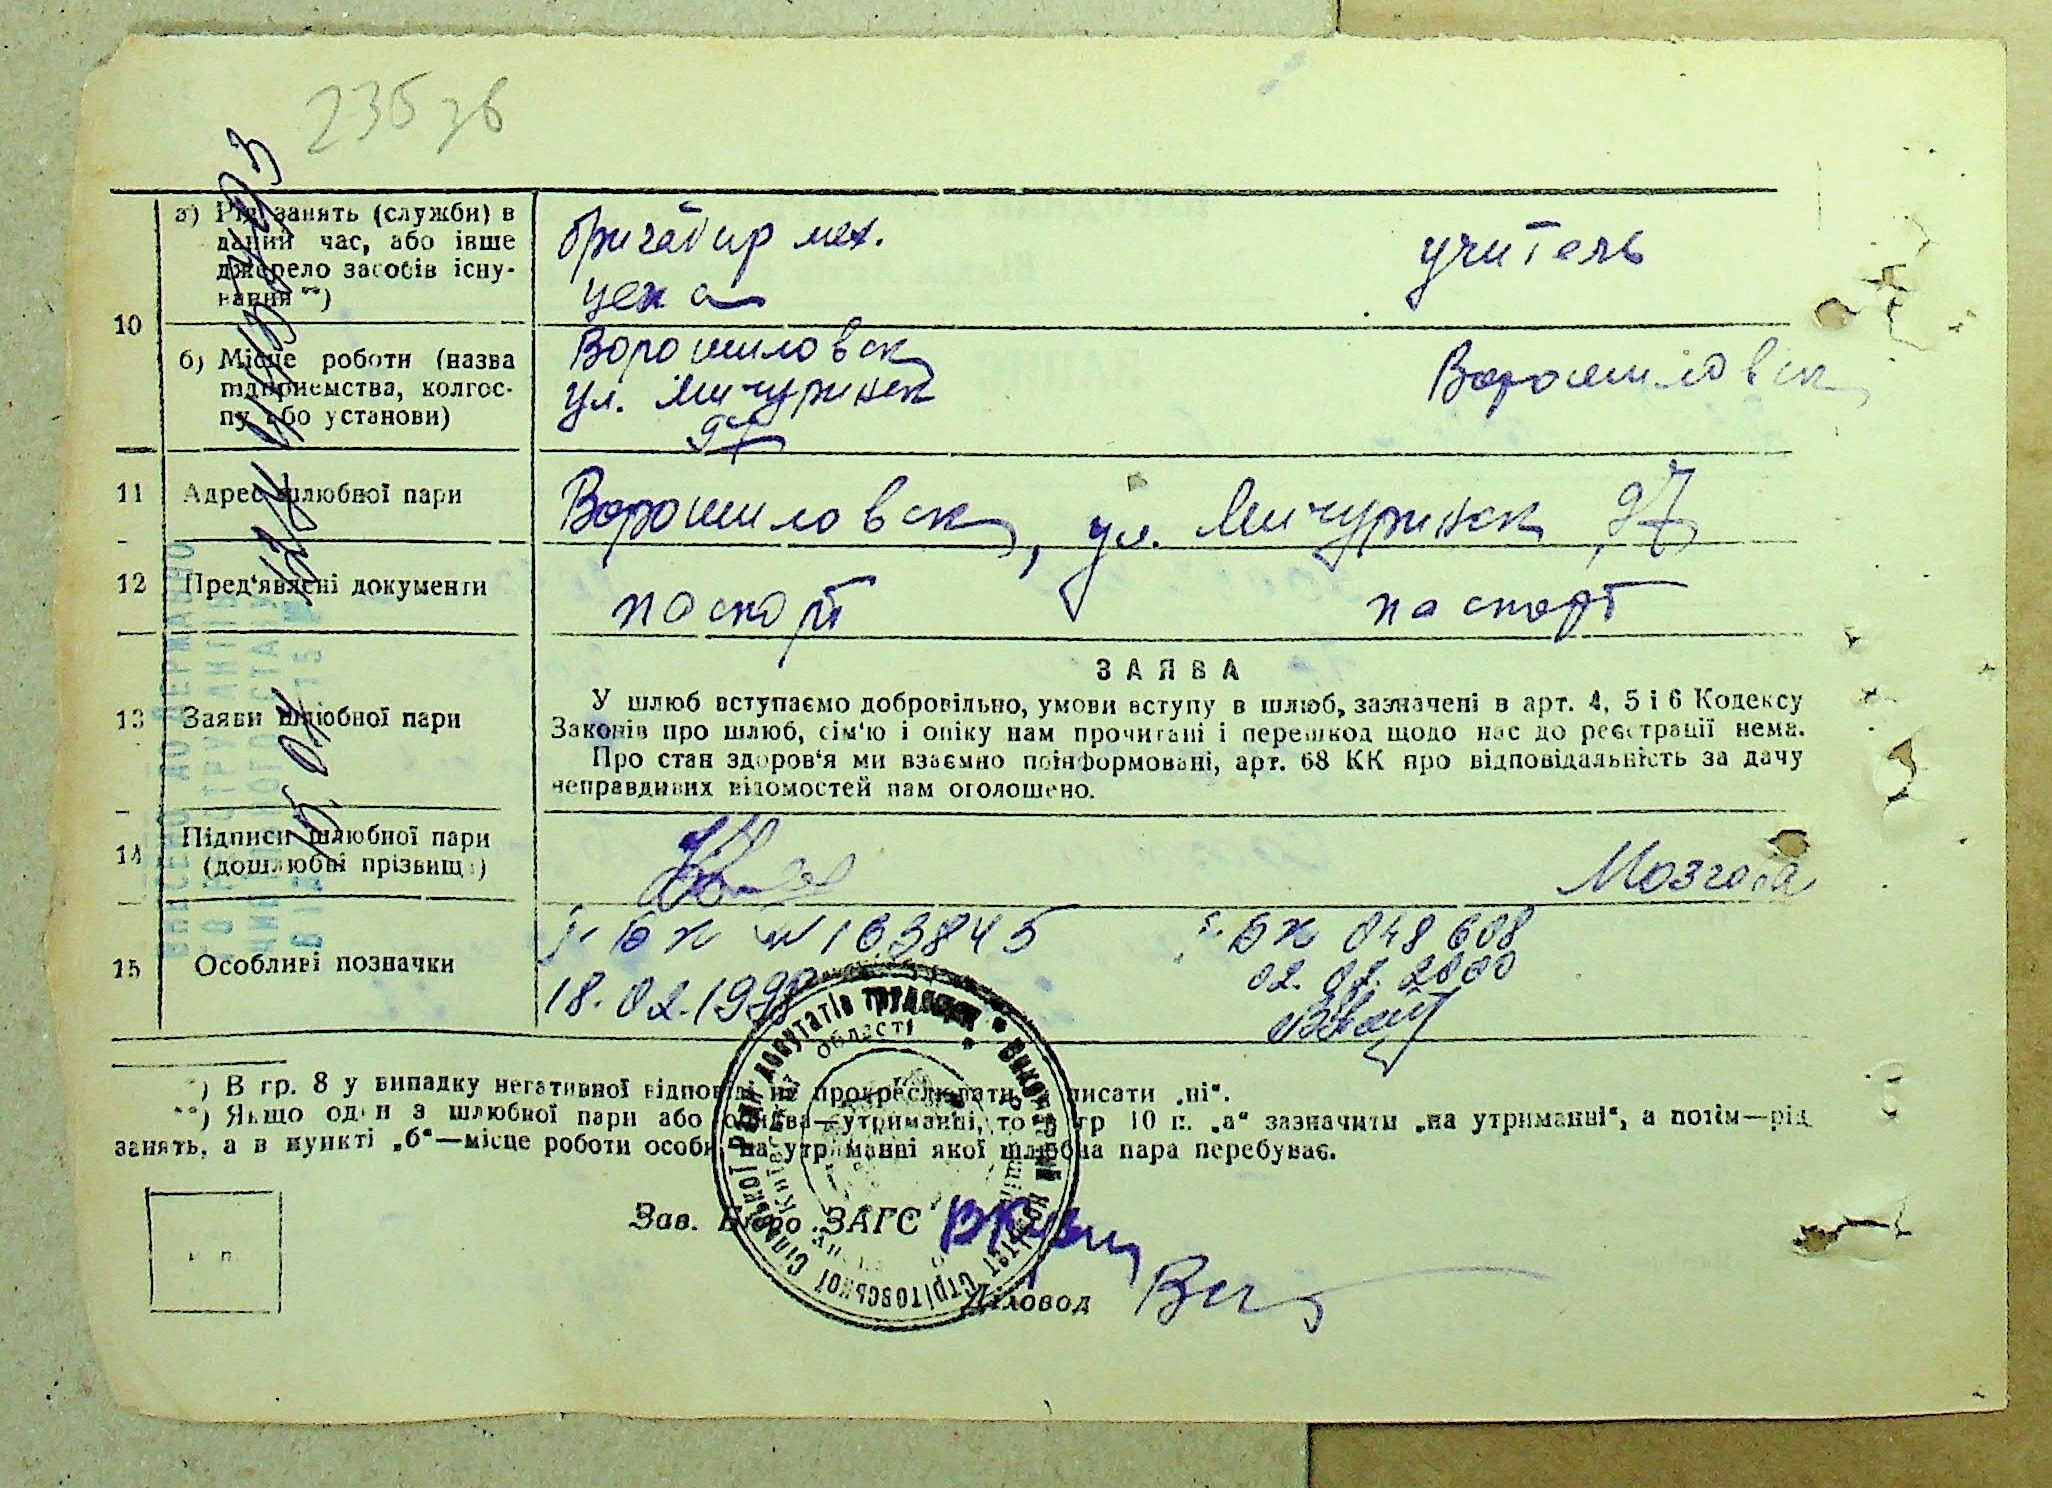 235 зв
10
а) Рід занять (служби) в
даний час, або інше
джерело засобів існу-
вання **)
бригадир мех.
цеха
учитель
б) Місце роботи (назва
підприємства, колгос-
пу або установи)
Ворошиловск
ул. Мичуринск
97
Ворошиловск
11 Адрес шлюбної пари
Ворошиловск, ул. Мичуринск 97
12 Пред'явлені документи
паспорт паспорт
13 Заяви шлюбної пари
ЗАЯВА
У шлюб вступаємо добровільно, умови вступу в шлюб, зазначені в арт. 4, 5 і 6 Кодексу
Законів про шлюб, сім'ю і опіку нам прочитані і перешкод щодо нас до реєстрації нема.
Про стан здоров'я ми взаємно поінформовані, арт. 68 КК про відповідальність за дачу
неправдивих відомостей нам оголошено.
14 Підписи шлюбної пари
(дошлюбні прізвища)
Мозговая
15 Особливі позначки
БК № 163845
18.02.1998
БК 048608
02. 2000
*) В гр. 8 у випадку негативної відповіді не прокреслювати, а писати „ні“.
**) Якщо один з шлюбної пари або обидва—утриманні, то в гр 10 п. „а“ зазначити „на утриманні“, а потім—рід
занять, а в пункті „б“—місце роботи особи, на утриманні якої шлюбна пара перебуває.
Зав. Бюро ЗАГС
Діловод
Виконавчий комітет Стрітовської сільської ради депутатів трудящих
області